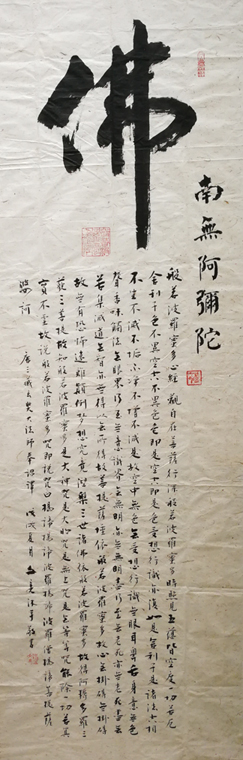 佛
南無阿彌陀
般若波羅蜜多心經 觀自在菩薩行深般若波羅蜜多時照見五蘊皆空度一切苦厄
舍利子色不異空空不異色色即是空空即是色受想行識亦復如是舍利子是諸法空相
不生不滅不垢不淨不增不減是故空中無色無受想行識無眼耳鼻舌身意無色
聲香味觸法無眼界乃至無意識界無無明亦無無明盡乃至無老死亦無老死盡無
苦集滅道無智亦無得以無所得故菩提薩埵依般若波羅蜜多故心無掛礙無掛礙
故無有恐怖遠離顛倒夢想究竟涅槃三世諸佛依般若波羅蜜多故得阿耨多羅三
藐三菩提故知般若波羅蜜多是大神咒是大明咒是無上咒是無等等咒能除一切苦真
實不虛故說般若波羅蜜多咒即說咒曰揭諦揭諦波羅揭諦波羅僧揭諦菩提薩
婆訶 唐三藏玄奘大法師奉詔譯 戊戌夏月